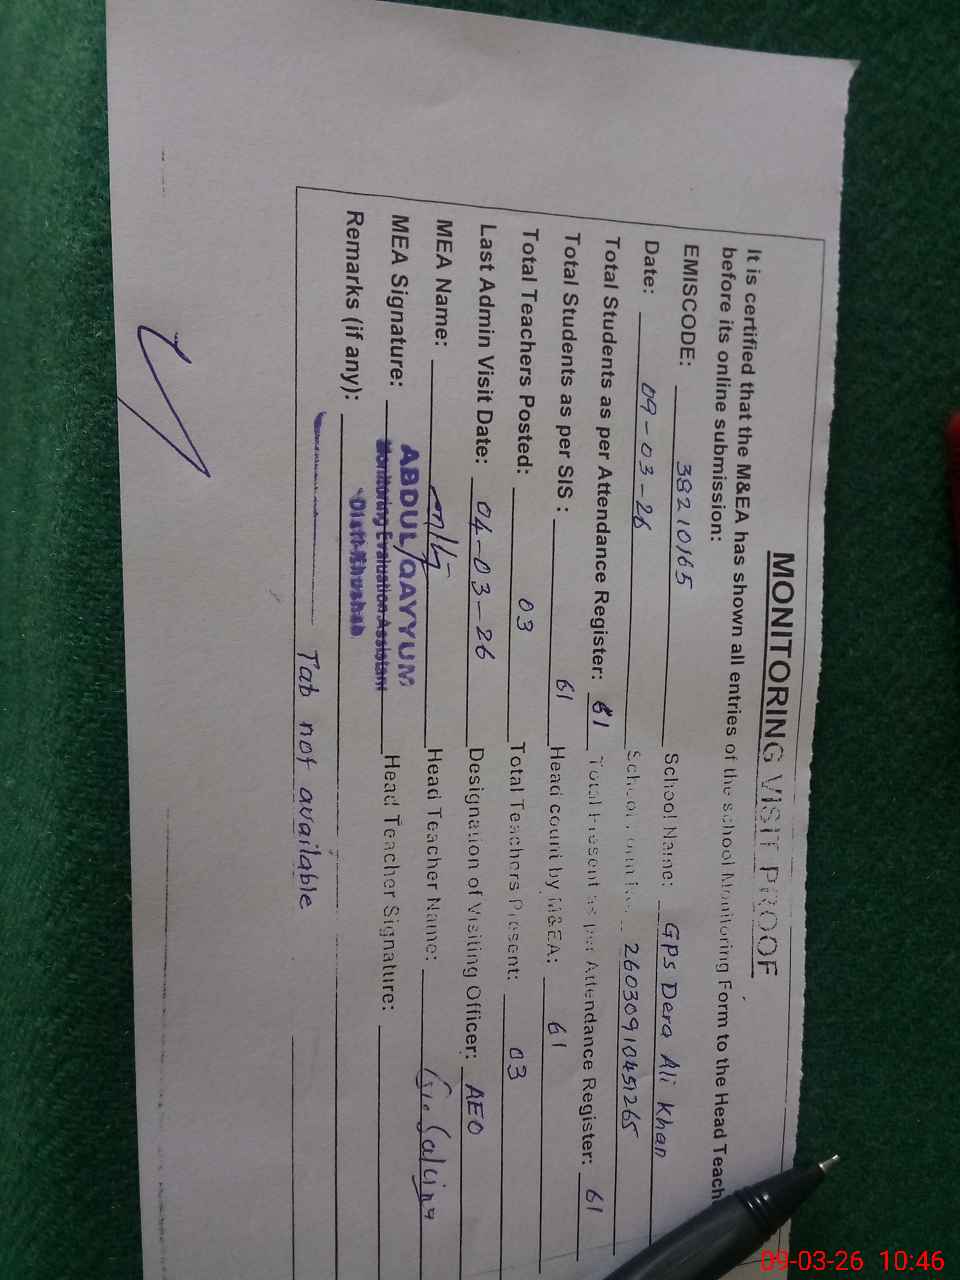 MONITORING VISIT PROOF
It is certified that the M&EA has shown all entries of the school Monitoring Form to the Head Teach
before its online submission:
EMISCODE: 38210165 School Name: Gps Dera Ali Khan
Date: 09-03-26 School Form No. 26030910451265
Total Students as per Attendance Register: 61 Total Present as per Attendance Register: 61
Total Students as per SIS: 61 Head count by M&EA: 61
Total Teachers Posted: 03 Total Teachers Present: 03
Last Admin Visit Date: 04-03-26 Designation of Visiting Officer: AEO
MEA Name: Head Teacher Name:
MEA Signature: Head Teacher Signature:
ABDUL QAYYUM
Monitoring Evaluation Assistant
Distt Khushab
Remarks (if any):
Tab not available
09-03-26 10:46